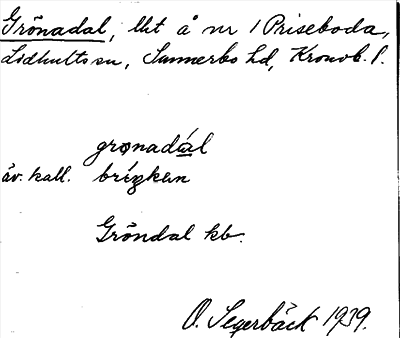 Grönadal, lht å nr 1 Priseboda,
Lidhults sn, Sunnerbo hd, Kronob. l.
grønadál
äv. kall. bríŋkən
Gröndal kb.
O. Segerbäck 1939.